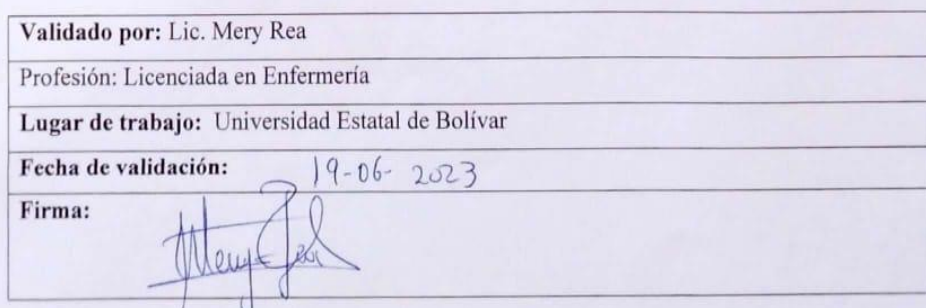 Validado por: Lic. Mery Rea
Profesión: Licenciada en Enfermería
Lugar de trabajo: Universidad Estatal de Bolívar
Fecha de validación: 19-06-2023
Firma: Mery Rea